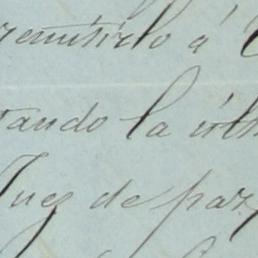 remitirlo á
tando la últ
Juez de paz